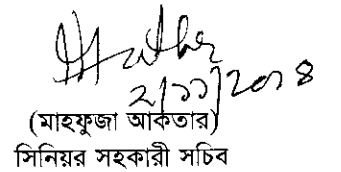 ২/১১/২০১৪
(মাহফুজা আকতার)
সিনিয়র সহকারী সচিব